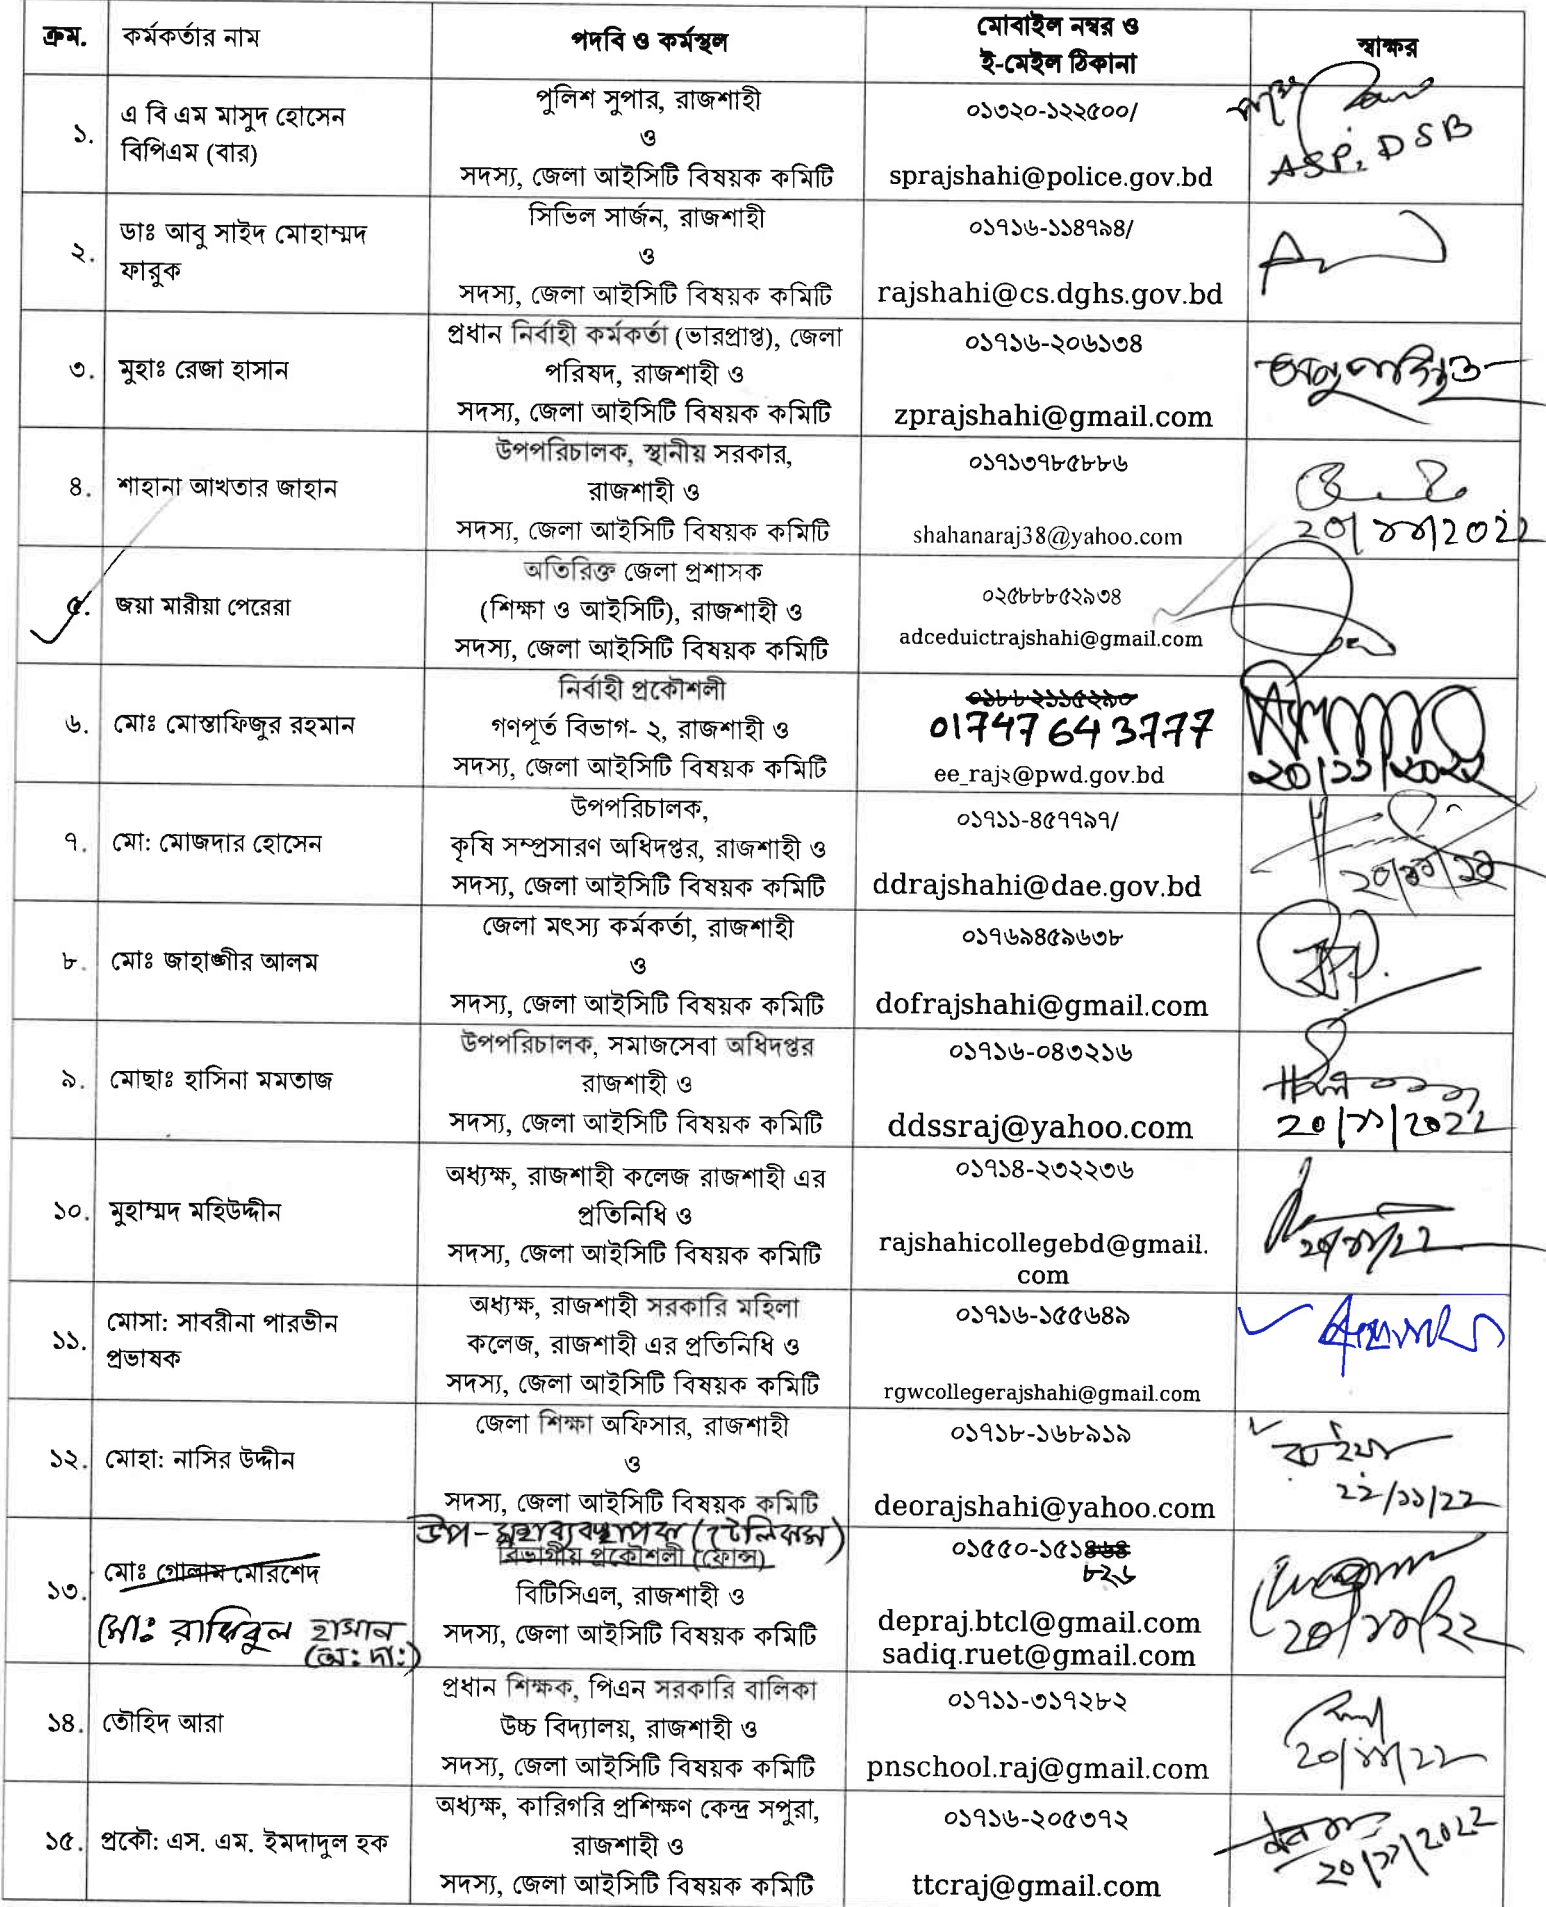 ক্রম.
কর্মকর্তার নাম
পদবি ও কর্মস্থল
মোবাইল নম্বর ও
ই-মেইল ঠিকানা
স্বাক্ষর
১.
এ বি এম মাসুদ হোসেন
বিপিএম (বার)
পুলিশ সুপার, রাজশাহী
ও
সদস্য, জেলা আইসিটি বিষয়ক কমিটি
০১৩২০-১২২৫০০/
sprajshahi@police.gov.bd
ASP, DSB
২.
ডাঃ আবু সাইদ মোহাম্মদ
ফারুক
সিভিল সার্জন, রাজশাহী
ও
সদস্য, জেলা আইসিটি বিষয়ক কমিটি
০১৭১৬-১১৪৭৯৪/
rajshahi@cs.dghs.gov.bd
৩.
মুহাঃ রেজা হাসান
প্রধান নির্বাহী কর্মকর্তা (ভারপ্রাপ্ত), জেলা
পরিষদ, রাজশাহী ও
সদস্য, জেলা আইসিটি বিষয়ক কমিটি
০১৭১৬-২০৬১৩৪
zprajshahi@gmail.com
৪.
শাহানা আখতার জাহান
উপপরিচালক, স্থানীয় সরকার,
রাজশাহী ও
সদস্য, জেলা আইসিটি বিষয়ক কমিটি
০১৭১৩৭৮৫৮৮৬
shahanaraj38@yahoo.com
২০/১১/২০২২
৫.
জয়া মারীয়া পেরেরা
অতিরিক্ত জেলা প্রশাসক
(শিক্ষা ও আইসিটি), রাজশাহী ও
সদস্য, জেলা আইসিটি বিষয়ক কমিটি
০২৫৮৮৮৫২৯৩৪
adceduictrajshahi@gmail.com
৬.
মোঃ মোস্তাফিজুর রহমান
নির্বাহী প্রকৌশলী
গণপূর্ত বিভাগ- ২, রাজশাহী ও
সদস্য, জেলা আইসিটি বিষয়ক কমিটি
01747643777
ee_raj২@pwd.gov.bd
২০/১১/২০২২
৭.
মো: মোজদার হোসেন
উপপরিচালক,
কৃষি সম্প্রসারণ অধিদপ্তর, রাজশাহী ও
সদস্য, জেলা আইসিটি বিষয়ক কমিটি
০১৭১১-৪৫৭৭৯৭/
ddrajshahi@dae.gov.bd
৮.
মোঃ জাহাঙ্গীর আলম
জেলা মৎস্য কর্মকর্তা, রাজশাহী
ও
সদস্য, জেলা আইসিটি বিষয়ক কমিটি
০১৭৬৯৪৫৯৬৩৮
dofrajshahi@gmail.com
৯.
মোছাঃ হাসিনা মমতাজ
উপপরিচালক, সমাজসেবা অধিদপ্তর
রাজশাহী ও
সদস্য, জেলা আইসিটি বিষয়ক কমিটি
০১৭১৬-০৪৩২১৬
ddssraj@yahoo.com
২০/১১/২০২২
১০.
মুহাম্মদ মহিউদ্দীন
অধ্যক্ষ, রাজশাহী কলেজ রাজশাহী এর
প্রতিনিধি ও
সদস্য, জেলা আইসিটি বিষয়ক কমিটি
০১৭১৪-২৩২২৩৬
rajshahicollegebd@gmail.
com
২০/১১/২২
১১.
মোসা: সাবরীনা পারভীন
প্রভাষক
অধ্যক্ষ, রাজশাহী সরকারি মহিলা
কলেজ, রাজশাহী এর প্রতিনিধি ও
সদস্য, জেলা আইসিটি বিষয়ক কমিটি
০১৭১৬-১৫৫৬৪৯
rgwcollegerajshahi@gmail.com
১২.
মোহা: নাসির উদ্দীন
জেলা শিক্ষা অফিসার, রাজশাহী
ও
সদস্য, জেলা আইসিটি বিষয়ক কমিটি
০১৭১৮-১৬৮৯১৯
deorajshahi@yahoo.com
২২/১১/২২
১৩.
মোঃ গোলাম মোরশেদ
মোঃ রাকিবুল হাসান
(অ: দা:)
উপ-মহাব্যবস্থাপক (টেলিকম)
বিভাগীয় প্রকৌশলী (ফোন্স)
বিটিসিএল, রাজশাহী ও
সদস্য, জেলা আইসিটি বিষয়ক কমিটি
০১৫৫০-১৫১
৮২৬
depraj.btcl@gmail.com
sadiq.ruet@gmail.com
২০/১১/২২
১৪.
তৌহিদ আরা
প্রধান শিক্ষক, পিএন সরকারি বালিকা
উচ্চ বিদ্যালয়, রাজশাহী ও
সদস্য, জেলা আইসিটি বিষয়ক কমিটি
০১৭১১-৩১৭২৮২
pnschool.raj@gmail.com
২০/১১/২২
১৫.
প্রকৌ: এস. এম. ইমদাদুল হক
অধ্যক্ষ, কারিগরি প্রশিক্ষণ কেন্দ্র সপুরা,
রাজশাহী ও
সদস্য, জেলা আইসিটি বিষয়ক কমিটি
০১৭১৬-২০৫৩৭২
ttcraj@gmail.com
২০/১১/২০২২